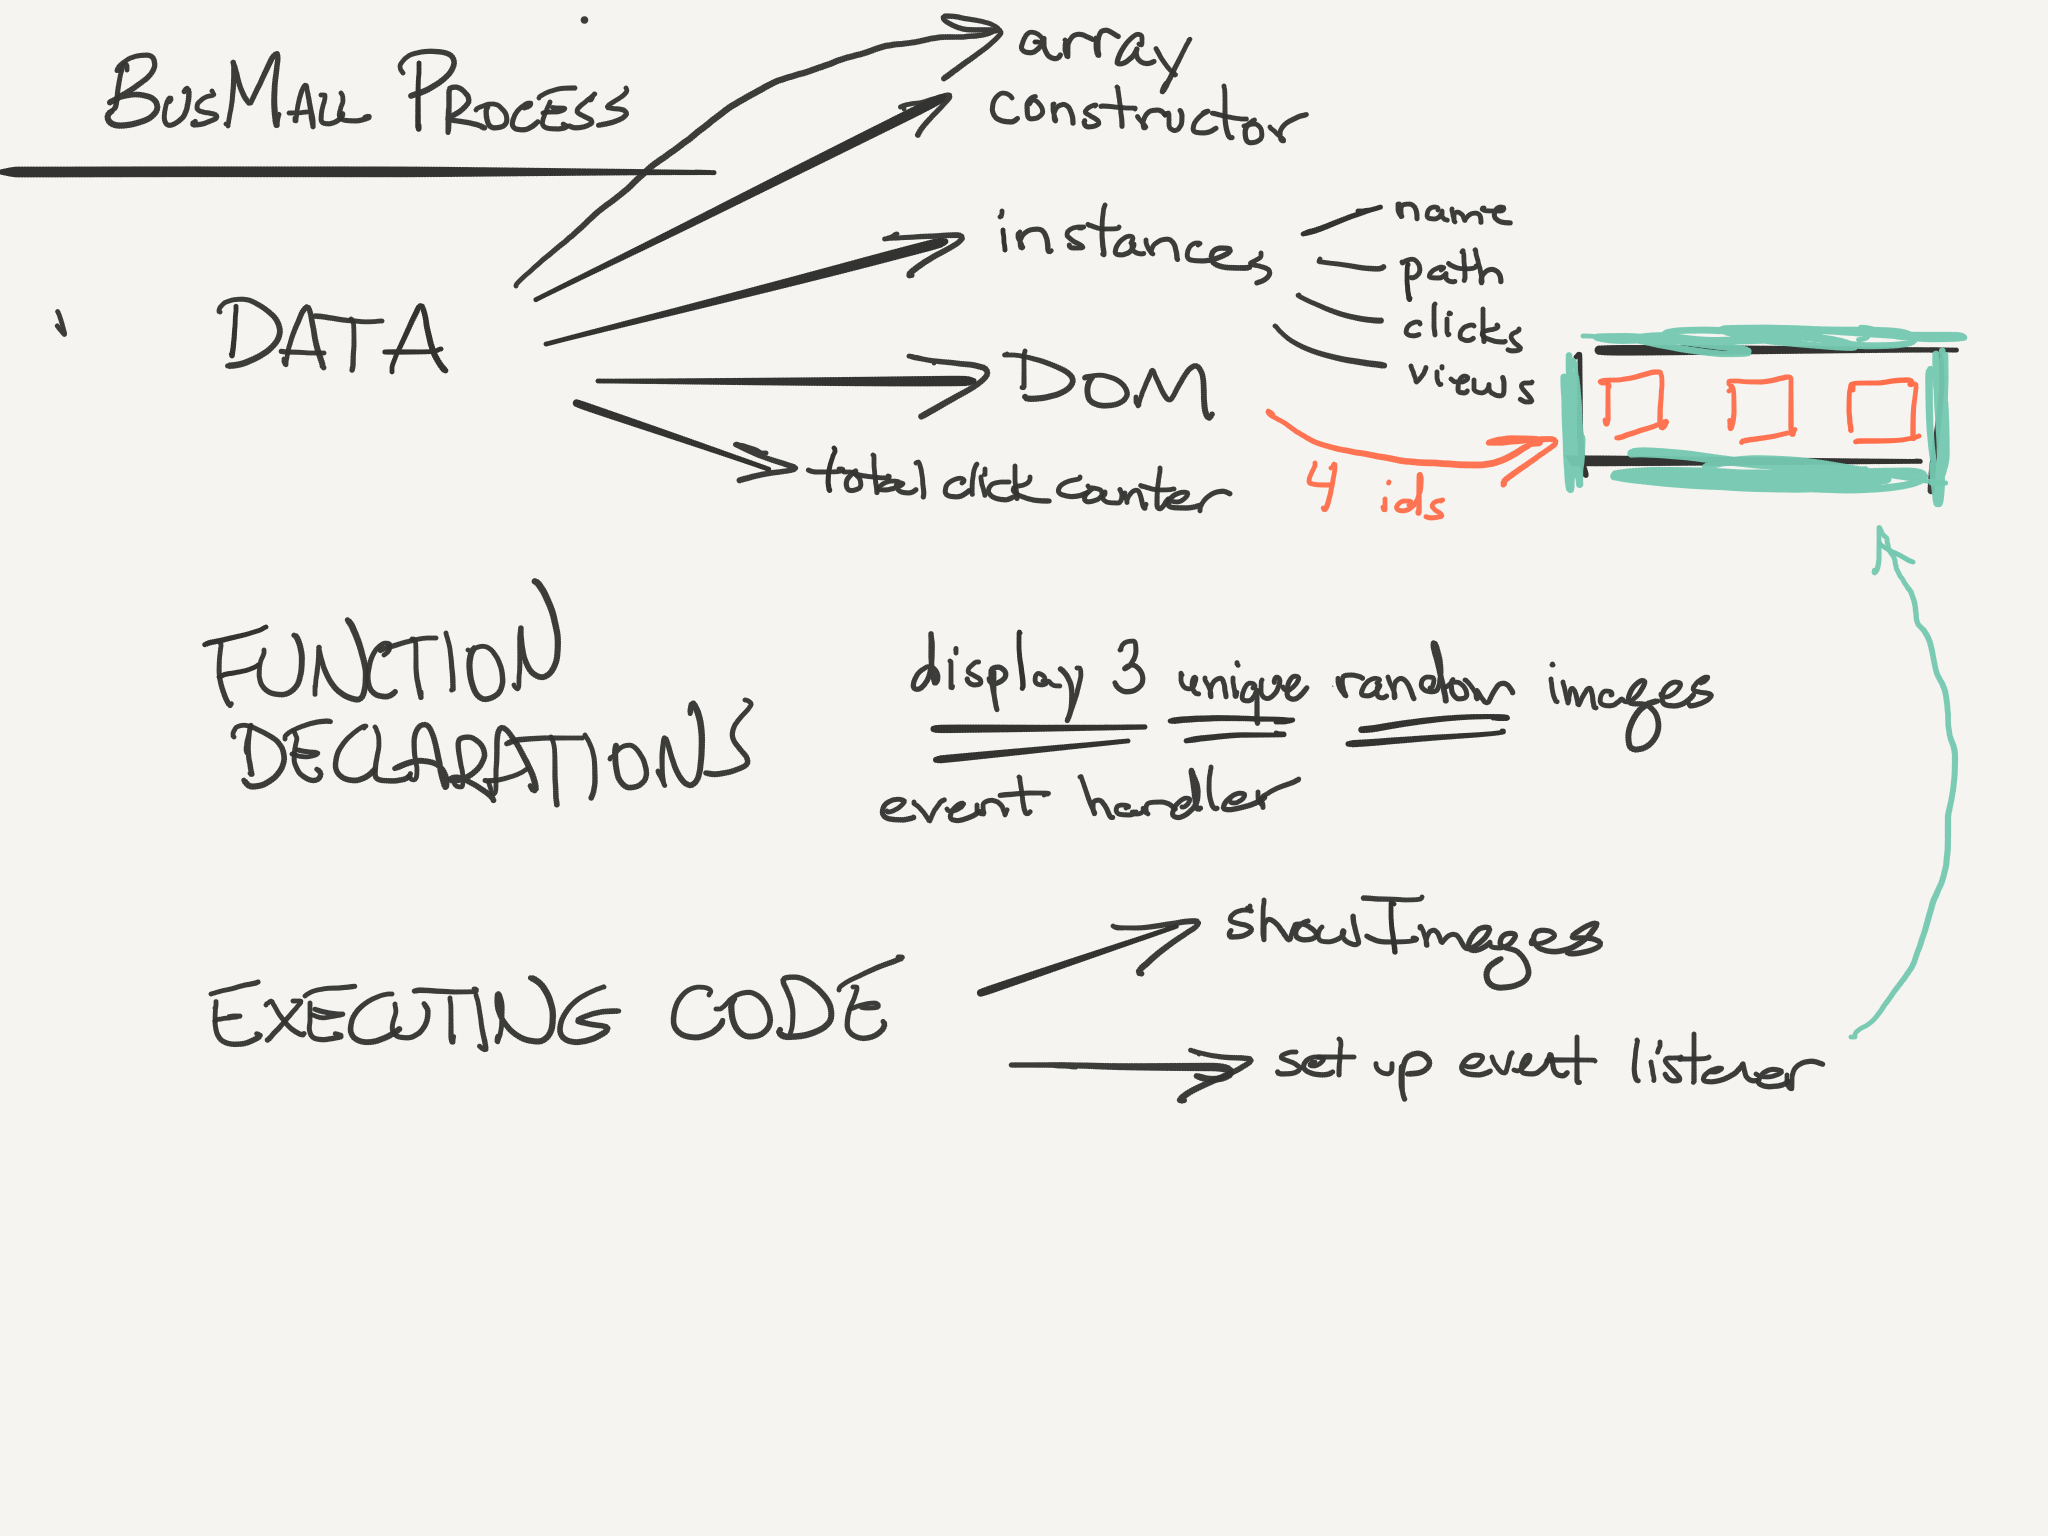 BUSMALL PROCESS
array
constructor
instances
name
path
clicks
views
DATA
DOM
total click counter
4 ids
FUNCTION
DECLARATIONS
display 3 unique random images
event handler
EXECUTING CODE
showImages
set up event listener